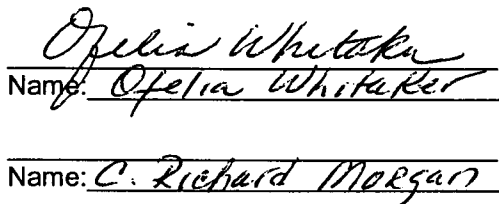 Ofelia Whitaker
Name: Ofelia Whitaker
Name: C. Richard Morgan